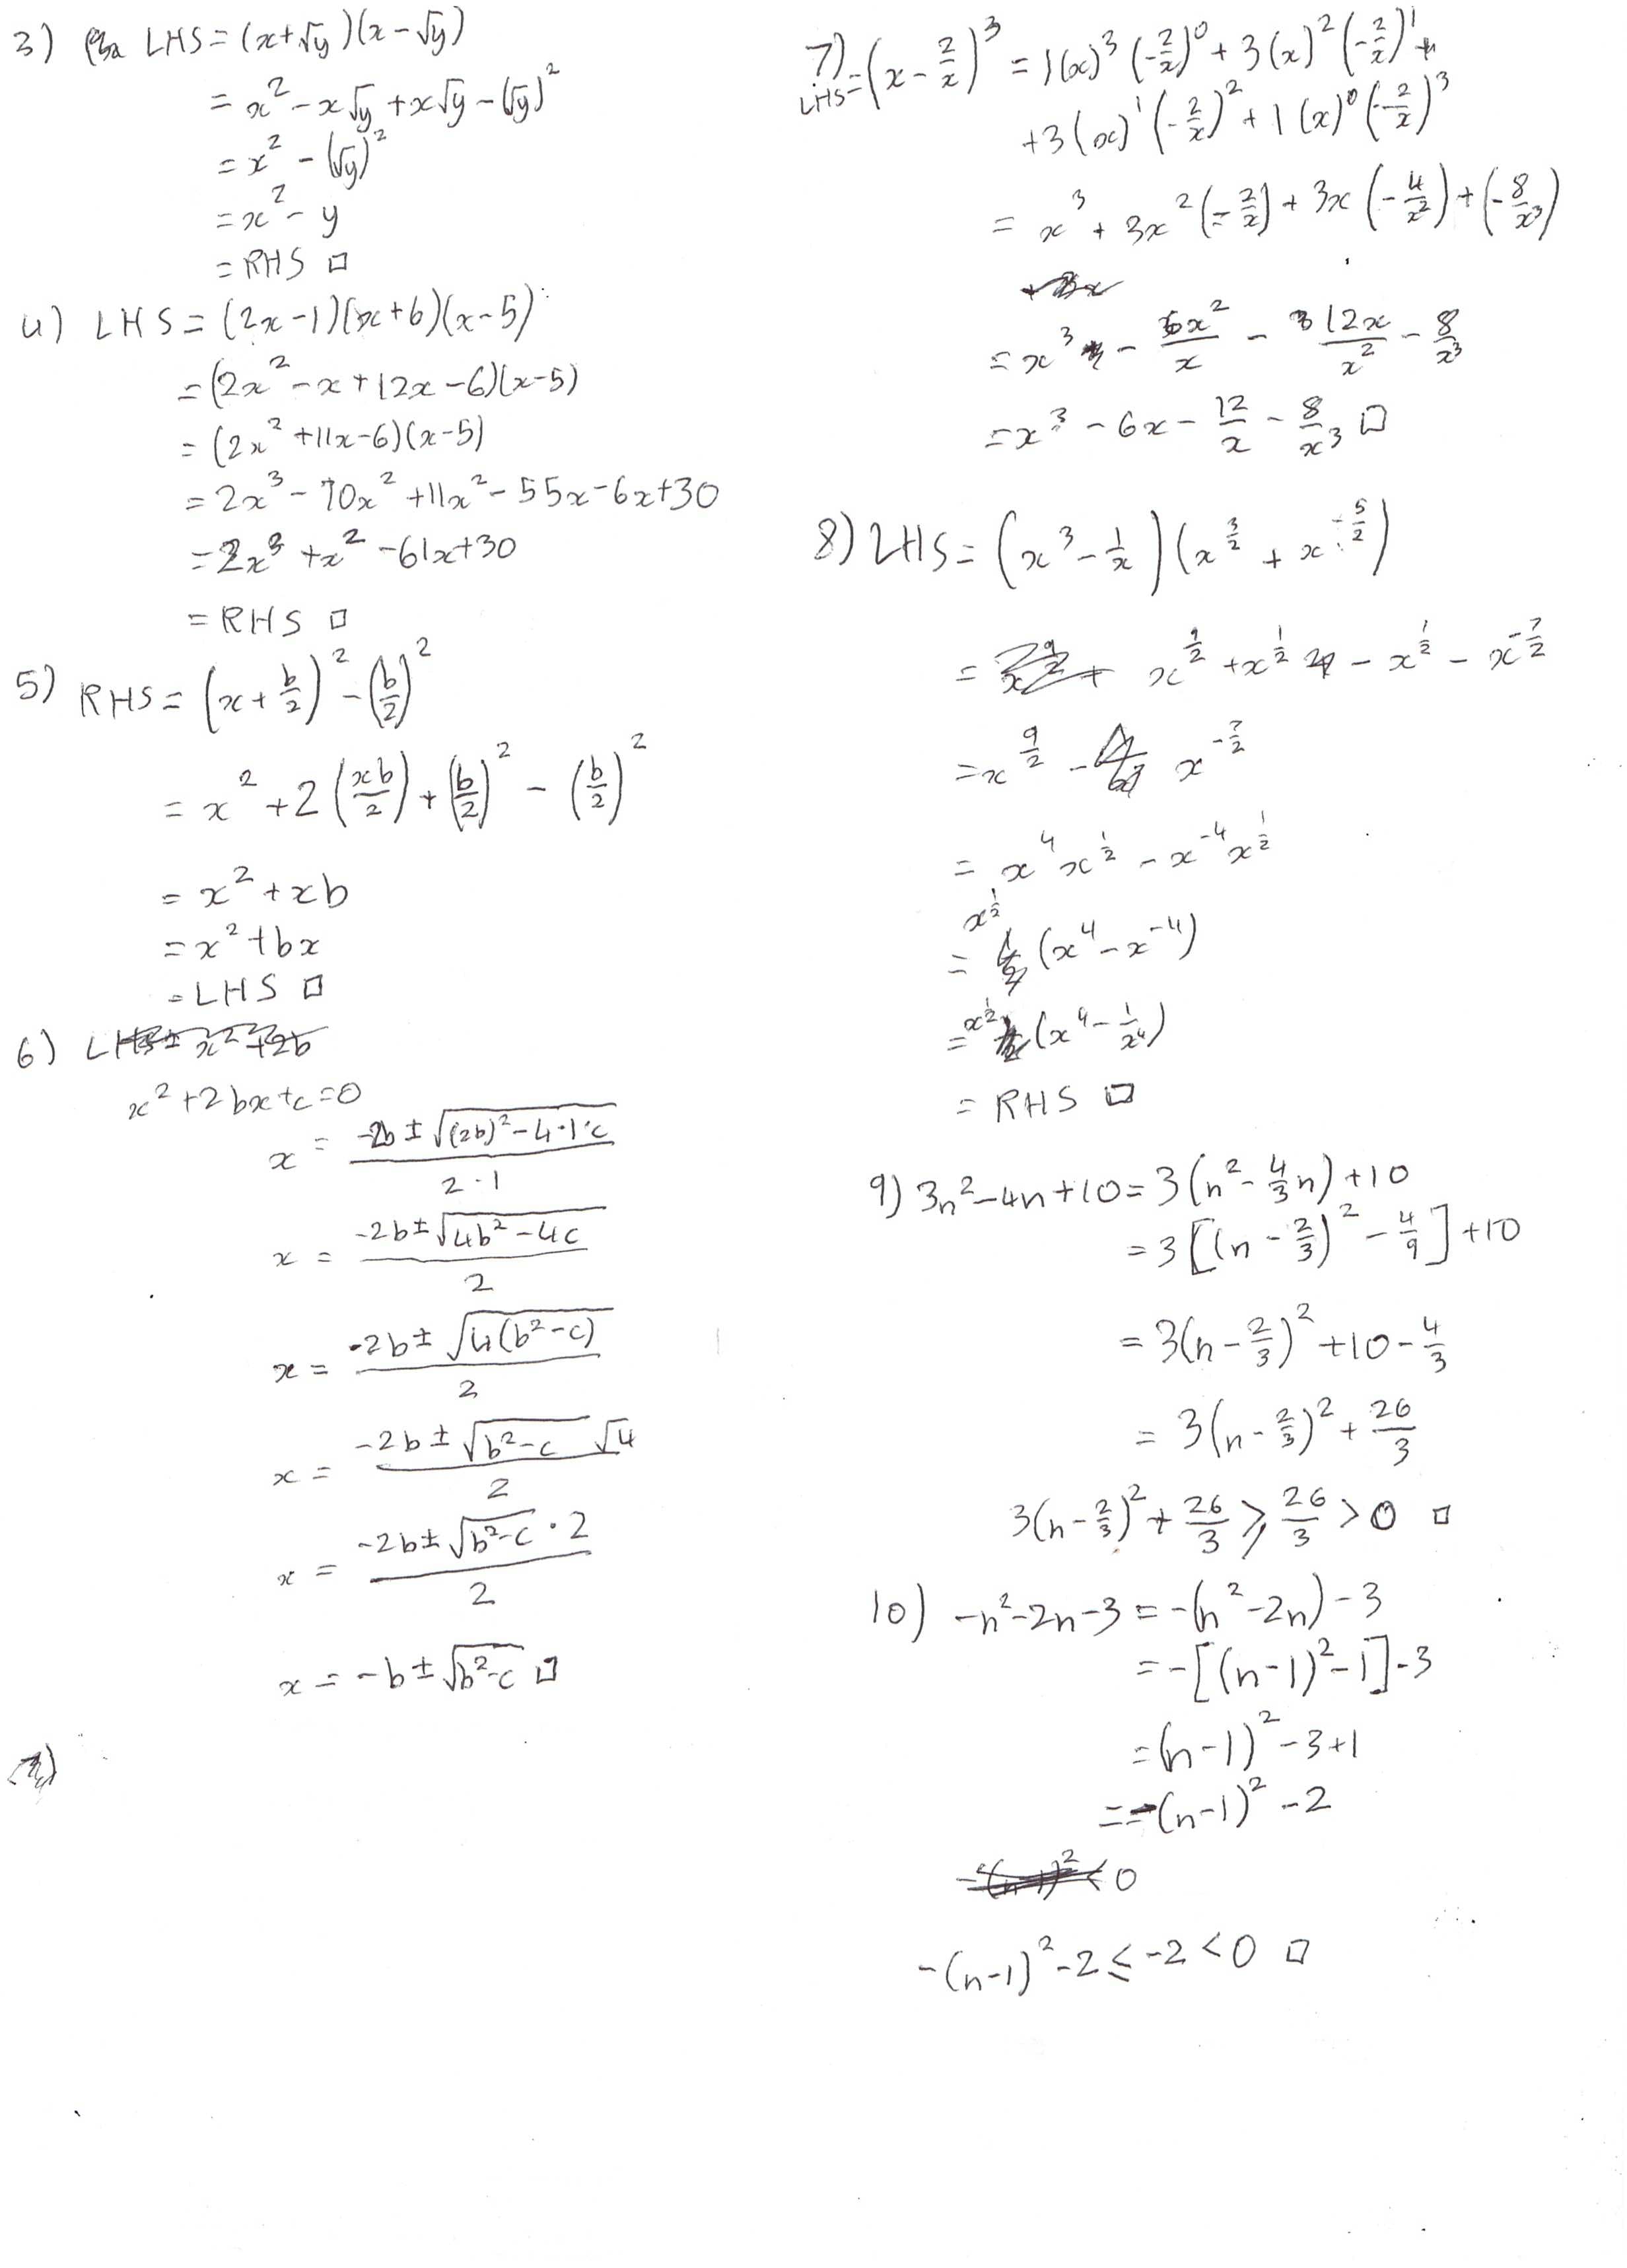 3) LHS = (x+√y)(x-√y)
= x² - x√y + x√y - (√y)²
= x² - (√y)²
= x² - y
= RHS □
4) LHS = (2x-1)(x+6)(x-5)
= (2x² - x + 12x - 6)(x-5)
= (2x² + 11x - 6)(x-5)
= 2x³ - 10x² + 11x² - 55x - 6x + 30
= 2x³ + x² - 61x + 30
= RHS □
5) RHS = (x + b/2)² - (b/2)²
= x² + 2(xb/2) + (b/2)² - (b/2)²
= x² + xb
= x² + bx
= LHS □
6)
x² + 2bx + c = 0
x = (-2b ± √((2b)² - 4·1·c)) / (2·1)
x = (-2b ± √(4b² - 4c)) / 2
x = (-2b ± √(4(b² - c))) / 2
x = (-2b ± √(b² - c) √4) / 2
x = (-2b ± √(b² - c) · 2) / 2
x = -b ± √(b² - c) □
7) LHS = (x - 2/x)³ = 1(x)³(-2/x)⁰ + 3(x)²(-2/x)¹ +
+ 3(x)¹(-2/x)² + 1(x)⁰(-2/x)³
= x³ + 3x²(-2/x) + 3x(-4/x²) + (-8/x³)
= x³ - 6x²/x - 12x/x² - 8/x³
= x³ - 6x - 12/x - 8/x³ □
8) LHS = (x³ - 1/x)(x^(3/2) + x^(-5/2))
= x^(9/2) + x^(1/2) - x^(1/2) - x^(-7/2)
= x^(9/2) - x^(-7/2)
= x⁴x^(1/2) - x⁻⁴x^(1/2)
= x^(1/2) (x⁴ - x⁻⁴)
= x^(1/2) (x⁴ - 1/x⁴)
= RHS □
9) 3n² - 4n + 10 = 3(n² - 4/3 n) + 10
= 3[(n - 2/3)² - 4/9] + 10
= 3(n - 2/3)² + 10 - 4/3
= 3(n - 2/3)² + 26/3
3(n - 2/3)² + 26/3 ⩾ 26/3 > 0 □
10) -n² - 2n - 3 = -(n² - 2n) - 3
= -[(n-1)² - 1] - 3
= (n-1)² - 3 + 1
= -(n-1)² - 2
-(n-1)² < 0
-(n-1)² - 2 ≤ -2 < 0 □